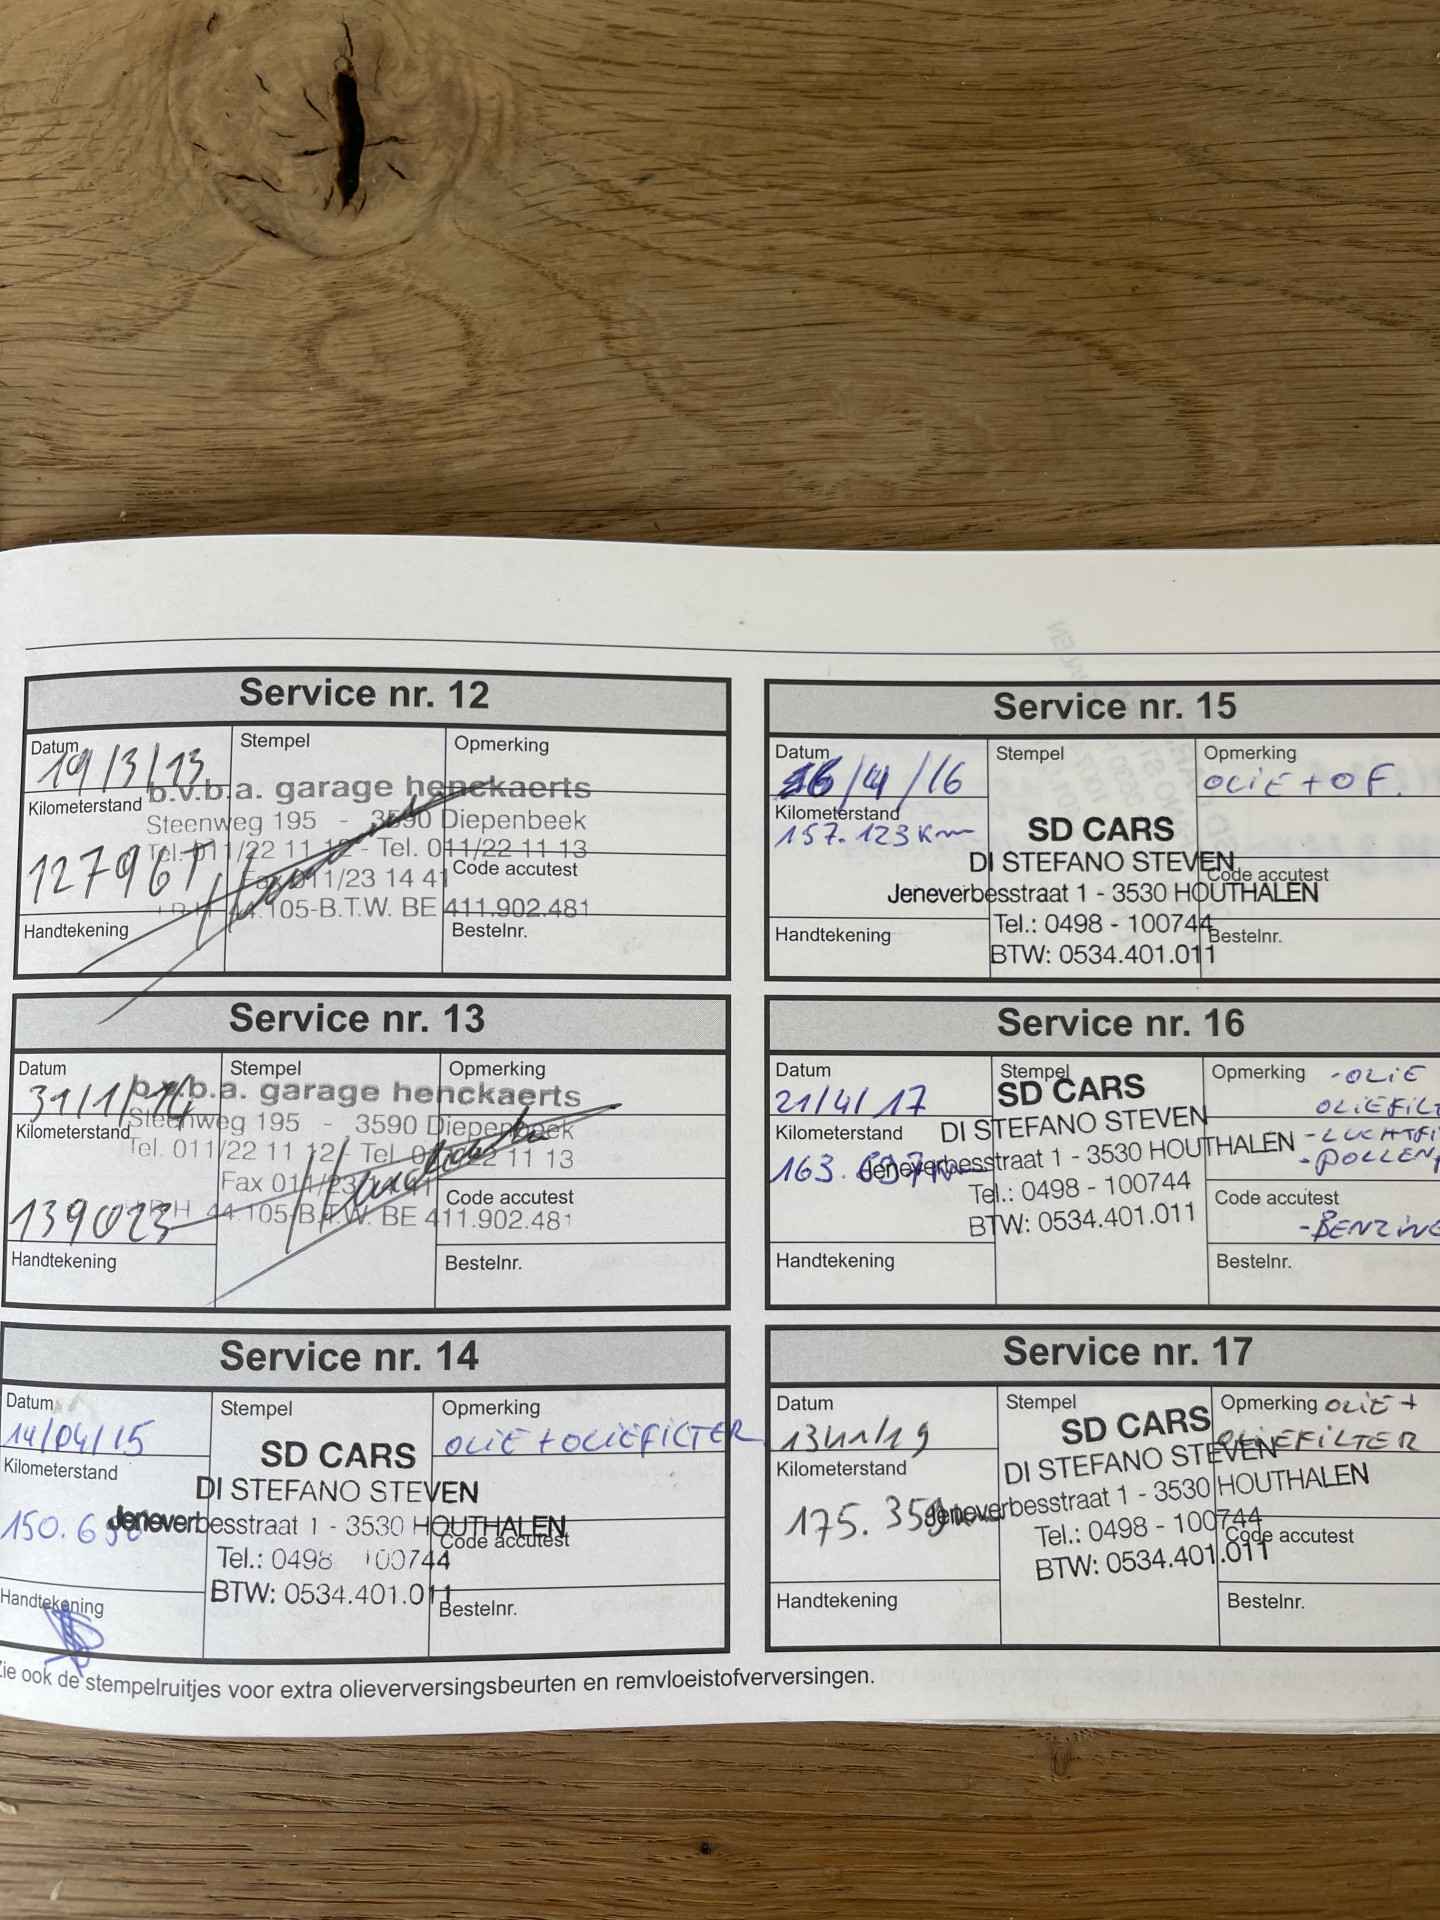 Service nr. 12
Datum
19/3/13
Stempel
Opmerking
Kilometerstand
b.v.b.a. garage henckaerts
Steenweg 195 - 3590 Diepenbeek
Tel. 011/22 11 12 - Tel. 011/22 11 13
Fax 011/23 14 41
Code accutest
44.105-B.T.W. BE 411.902.481
Handtekening
Bestelnr.
Service nr. 13
Datum
31/1/14
Stempel
Opmerking
Kilometerstand
b.v.b.a. garage henckaerts
Steenweg 195 - 3590 Diepenbeek
Tel. 011/22 11 12 - Tel. 011/22 11 13
Fax 011/23 14 41
Code accutest
139023
44.105-B.T.W. BE 411.902.481
Handtekening
Bestelnr.
Service nr. 14
Datum
14/04/15
Stempel
Opmerking
OLIE + OLIEFILTER
Kilometerstand
SD CARS
DI STEFANO STEVEN
Jeneverbesstraat 1 - 3530 HOUTHALEN
Code accutest
Tel.: 0498 100744
BTW: 0534.401.011
Handtekening
Bestelnr.
Service nr. 15
Datum
/4/16
Stempel
Opmerking
OLIE + OF.
Kilometerstand
157.123 Km
SD CARS
DI STEFANO STEVEN
Code accutest
Jeneverbesstraat 1 - 3530 HOUTHALEN
Tel.: 0498 - 100744
BTW: 0534.401.011
Handtekening
Bestelnr.
Service nr. 16
Datum
21/4/17
Stempel
Opmerking
- OLIE
OLIEFILT
- LUCHTFI
- POLLEN
Kilometerstand
SD CARS
DI STEFANO STEVEN
Jeneverbesstraat 1 - 3530 HOUTHALEN
Tel.: 0498 - 100744
BTW: 0534.401.011
Code accutest
- BENZINE
Handtekening
Bestelnr.
Service nr. 17
Datum
13/11/19
Stempel
Opmerking
OLIE +
OLIEFILTER
Kilometerstand
SD CARS
DI STEFANO STEVEN
Jeneverbesstraat 1 - 3530 HOUTHALEN
Tel.: 0498 - 100744
BTW: 0534.401.011
Code accutest
Handtekening
Bestelnr.
Zie ook de stempelruitjes voor extra olieverversingsbeurten en remvloeistofverversingen.